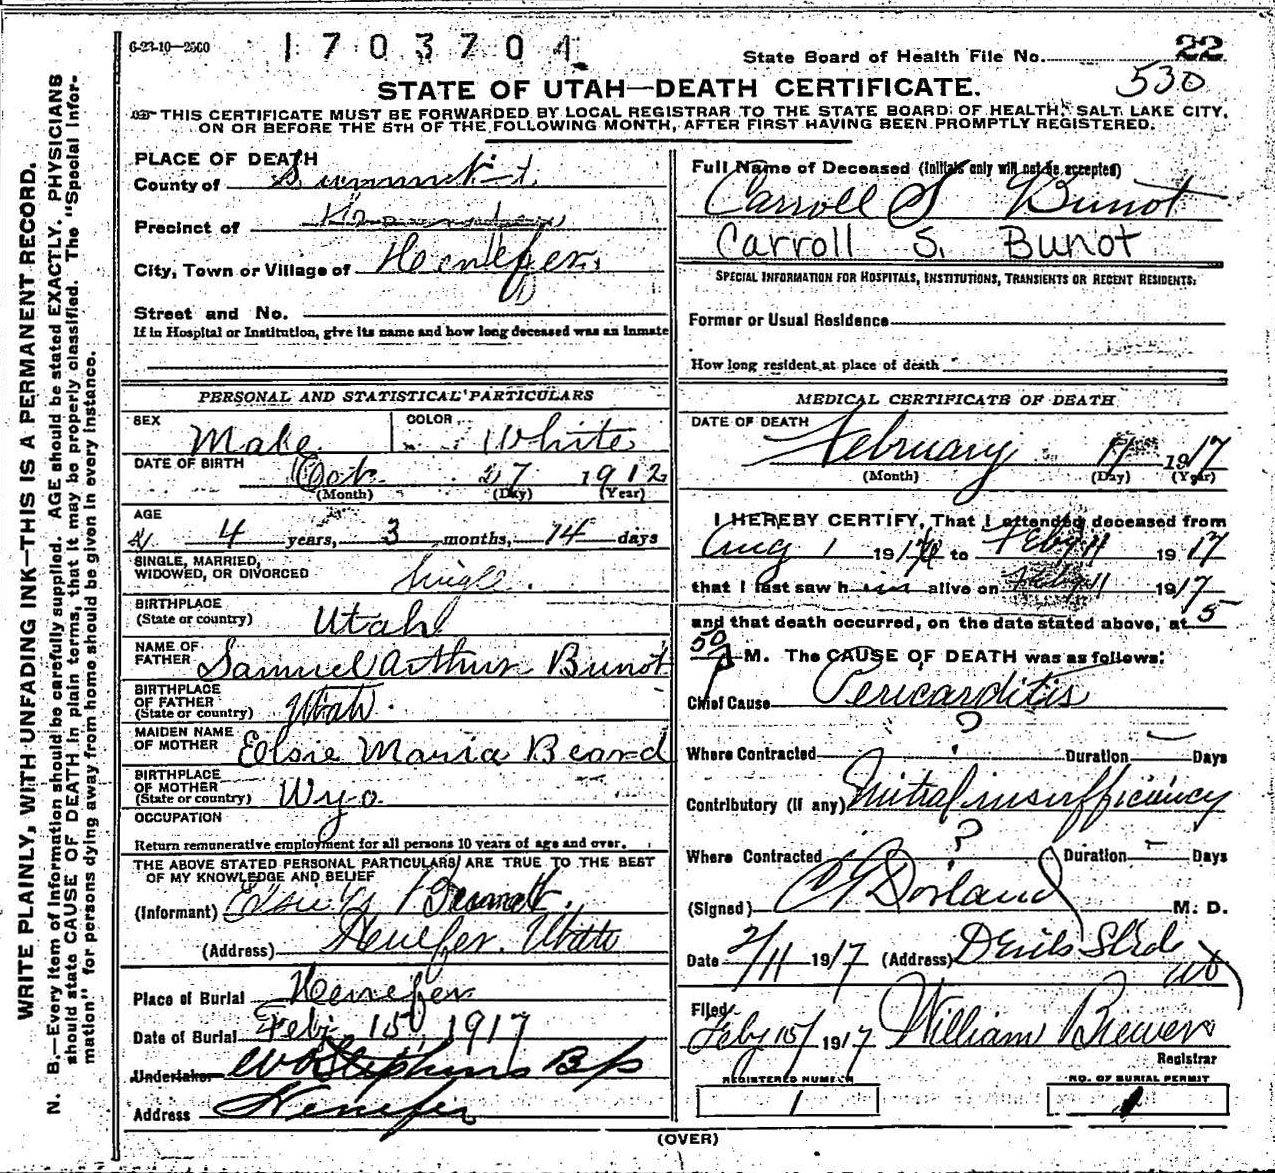 6-23-10—2500
1703704
State Board of Health File No. 22
530
STATE OF UTAH—DEATH CERTIFICATE.
THIS CERTIFICATE MUST BE FORWARDED BY LOCAL REGISTRAR TO THE STATE BOARD OF HEALTH, SALT LAKE CITY,
ON OR BEFORE THE 5TH OF THE FOLLOWING MONTH, AFTER FIRST HAVING BEEN PROMPTLY REGISTERED.
WRITE PLAINLY, WITH UNFADING INK—THIS IS A PERMANENT RECORD.
N. B.—Every item of Information should be carefully supplied. AGE should be stated EXACTLY. PHYSICIANS
should state CAUSE OF DEATH in plain terms, that it may be properly classified. The "Special Infor-
mation" for persons dying away from home should be given in every instance.
PLACE OF DEATH
County of Summit
Precinct of
City, Town or Village of Henefer
Street and No.
If in Hospital or Institution, give its name and how long deceased was an inmate
PERSONAL AND STATISTICAL PARTICULARS
SEX Male COLOR White
DATE OF BIRTH Oct. 27 1912
(Month) (Day) (Year)
AGE
4 years, 3 months, 14 days
SINGLE, MARRIED,
WIDOWED, OR DIVORCED Single.
BIRTHPLACE
(State or country) Utah
NAME OF
FATHER Samuel Arthur Bunot
BIRTHPLACE
OF FATHER
(State or country) Utah.
MAIDEN NAME
OF MOTHER Elsie Maria Beard
BIRTHPLACE
OF MOTHER
(State or country) Wyo.
OCCUPATION
Return remunerative employment for all persons 10 years of age and over.
THE ABOVE STATED PERSONAL PARTICULARS ARE TRUE TO THE BEST
OF MY KNOWLEDGE AND BELIEF
(Informant) Elsie M Bunot.
(Address) Henefer. Utah
Place of Burial Henefer
Date of Burial Feb. 15, 1917
Undertaker Stephens Bp
Address Henefer
Full Name of Deceased (initials only will not be accepted)
Carroll S Bunot
Carroll S. Bunot
SPECIAL INFORMATION FOR HOSPITALS, INSTITUTIONS, TRANSIENTS OR RECENT RESIDENTS:
Former or Usual Residence
How long resident at place of death
MEDICAL CERTIFICATE OF DEATH
DATE OF DEATH
February 11 1917
(Month) (Day) (Year)
I HEREBY CERTIFY, That I attended deceased from
Aug 1 191 to Feby 11 1917
that I last saw him alive on Feby 11 1917
and that death occurred, on the date stated above, at 5
50 M. The CAUSE OF DEATH was as follows:
Chief Cause Pericarditis
Where Contracted ? Duration — Days
Contributory (if any) Mitral insufficiency
Where Contracted ? Duration — Days
(Signed) Dorland M. D.
Date 2/11 1917 (Address) Devils Slide
Ut
Filed
Feby 15 1917 William Brewer
Registrar
REGISTERED NUMBER
1
NO. OF BURIAL PERMIT
1
(OVER)